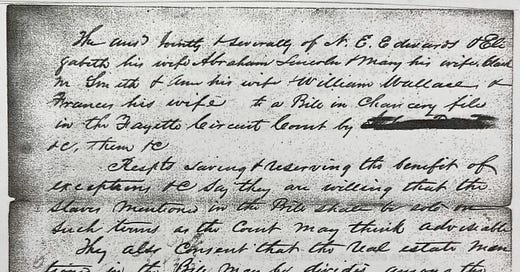 The ansr jointly & severally of N. E. Edwards & Eli
zabeth his wife Abraham Lincoln & Mary his wife, Clark
M. Smith & Ann his wife & William Wallace &
Frances his wife to a Bill in Chancery file
in the Fayette Circuit Court by
&c, them &c
Respts saving & reserving the benefit of
exceptions &c say they are willing that the
slaves mentioned in the Bill shall be sold on
such terms as the Court may think advisable
They also consent that the real estate men
tioned in the Bill may be divided among the